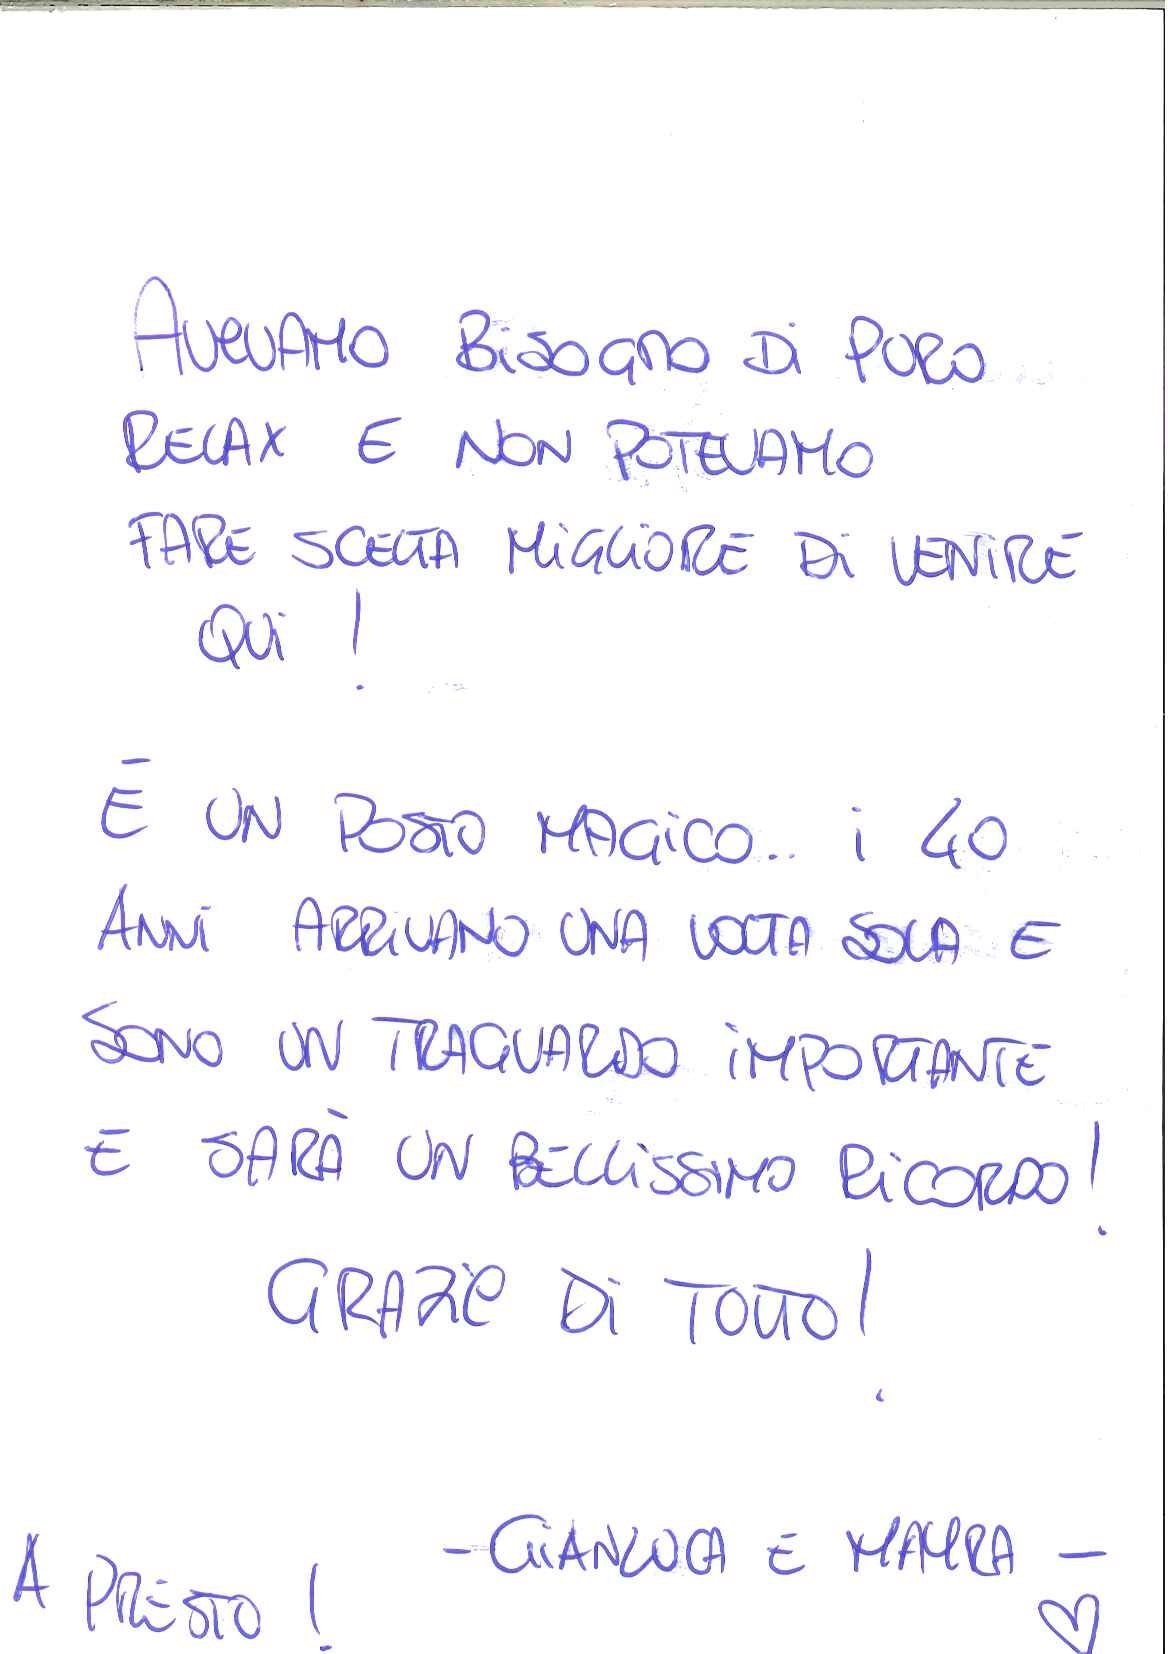 AVEVAMO BiSOGNO Di PURO
RELAX E NON POTEVAMO
FARE SCELTA MiGLiORE Di VENiRE
QUi !
È UN POSTO MAGiCO.. i 40
ANNi ARRiVANO UNA VOLTA SOLA E
SONO UN TRAGUARDO iMPORTANTE
E SARÀ UN BELLiSSiMO RiCORDO!
GRAZiE Di TUTTO!
- GiANLUCA E MAMRA -
A PRESTO !